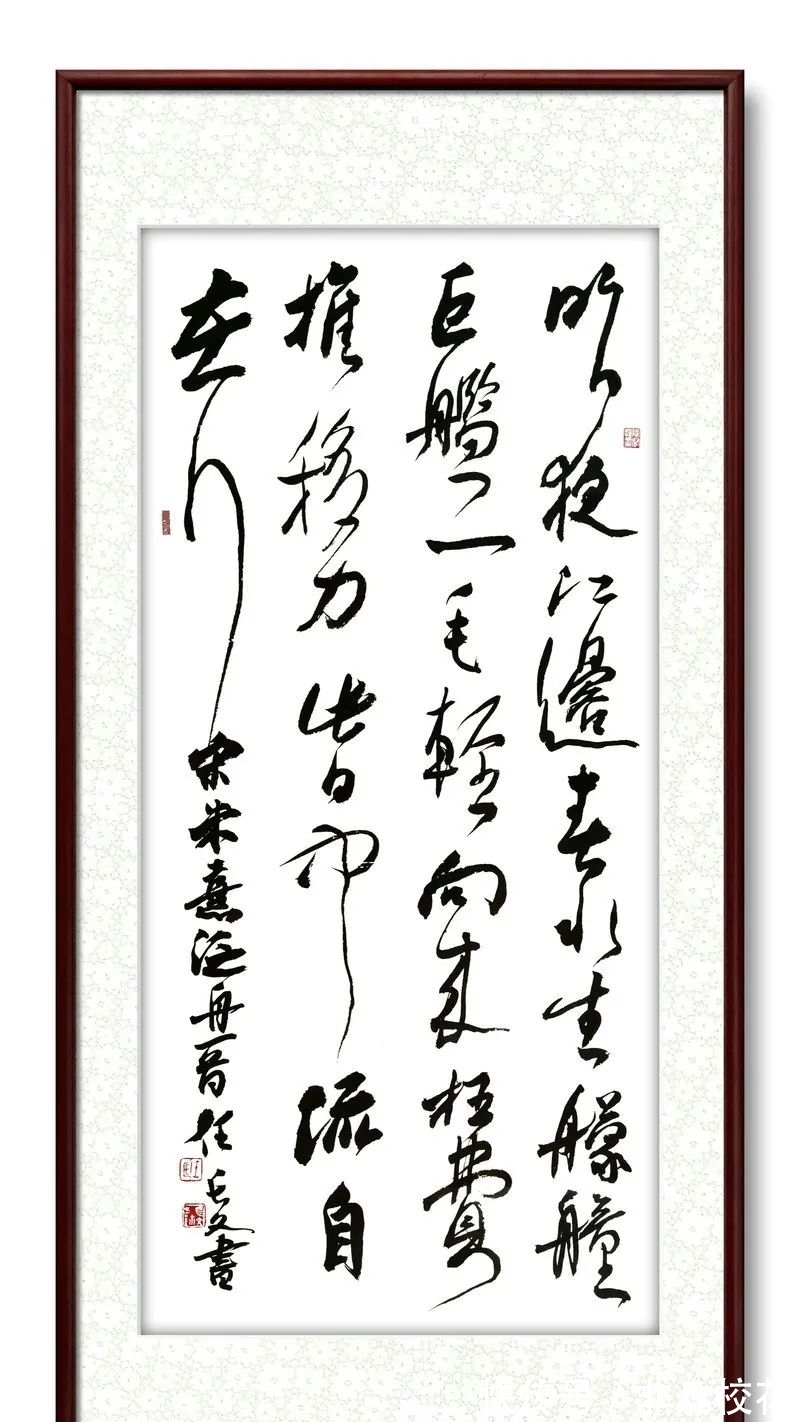 昨夜江邊春水生艨艟
巨艦一毛輕向來枉費
推移力此日中流自
在行
宋朱熹泛舟任文書
校